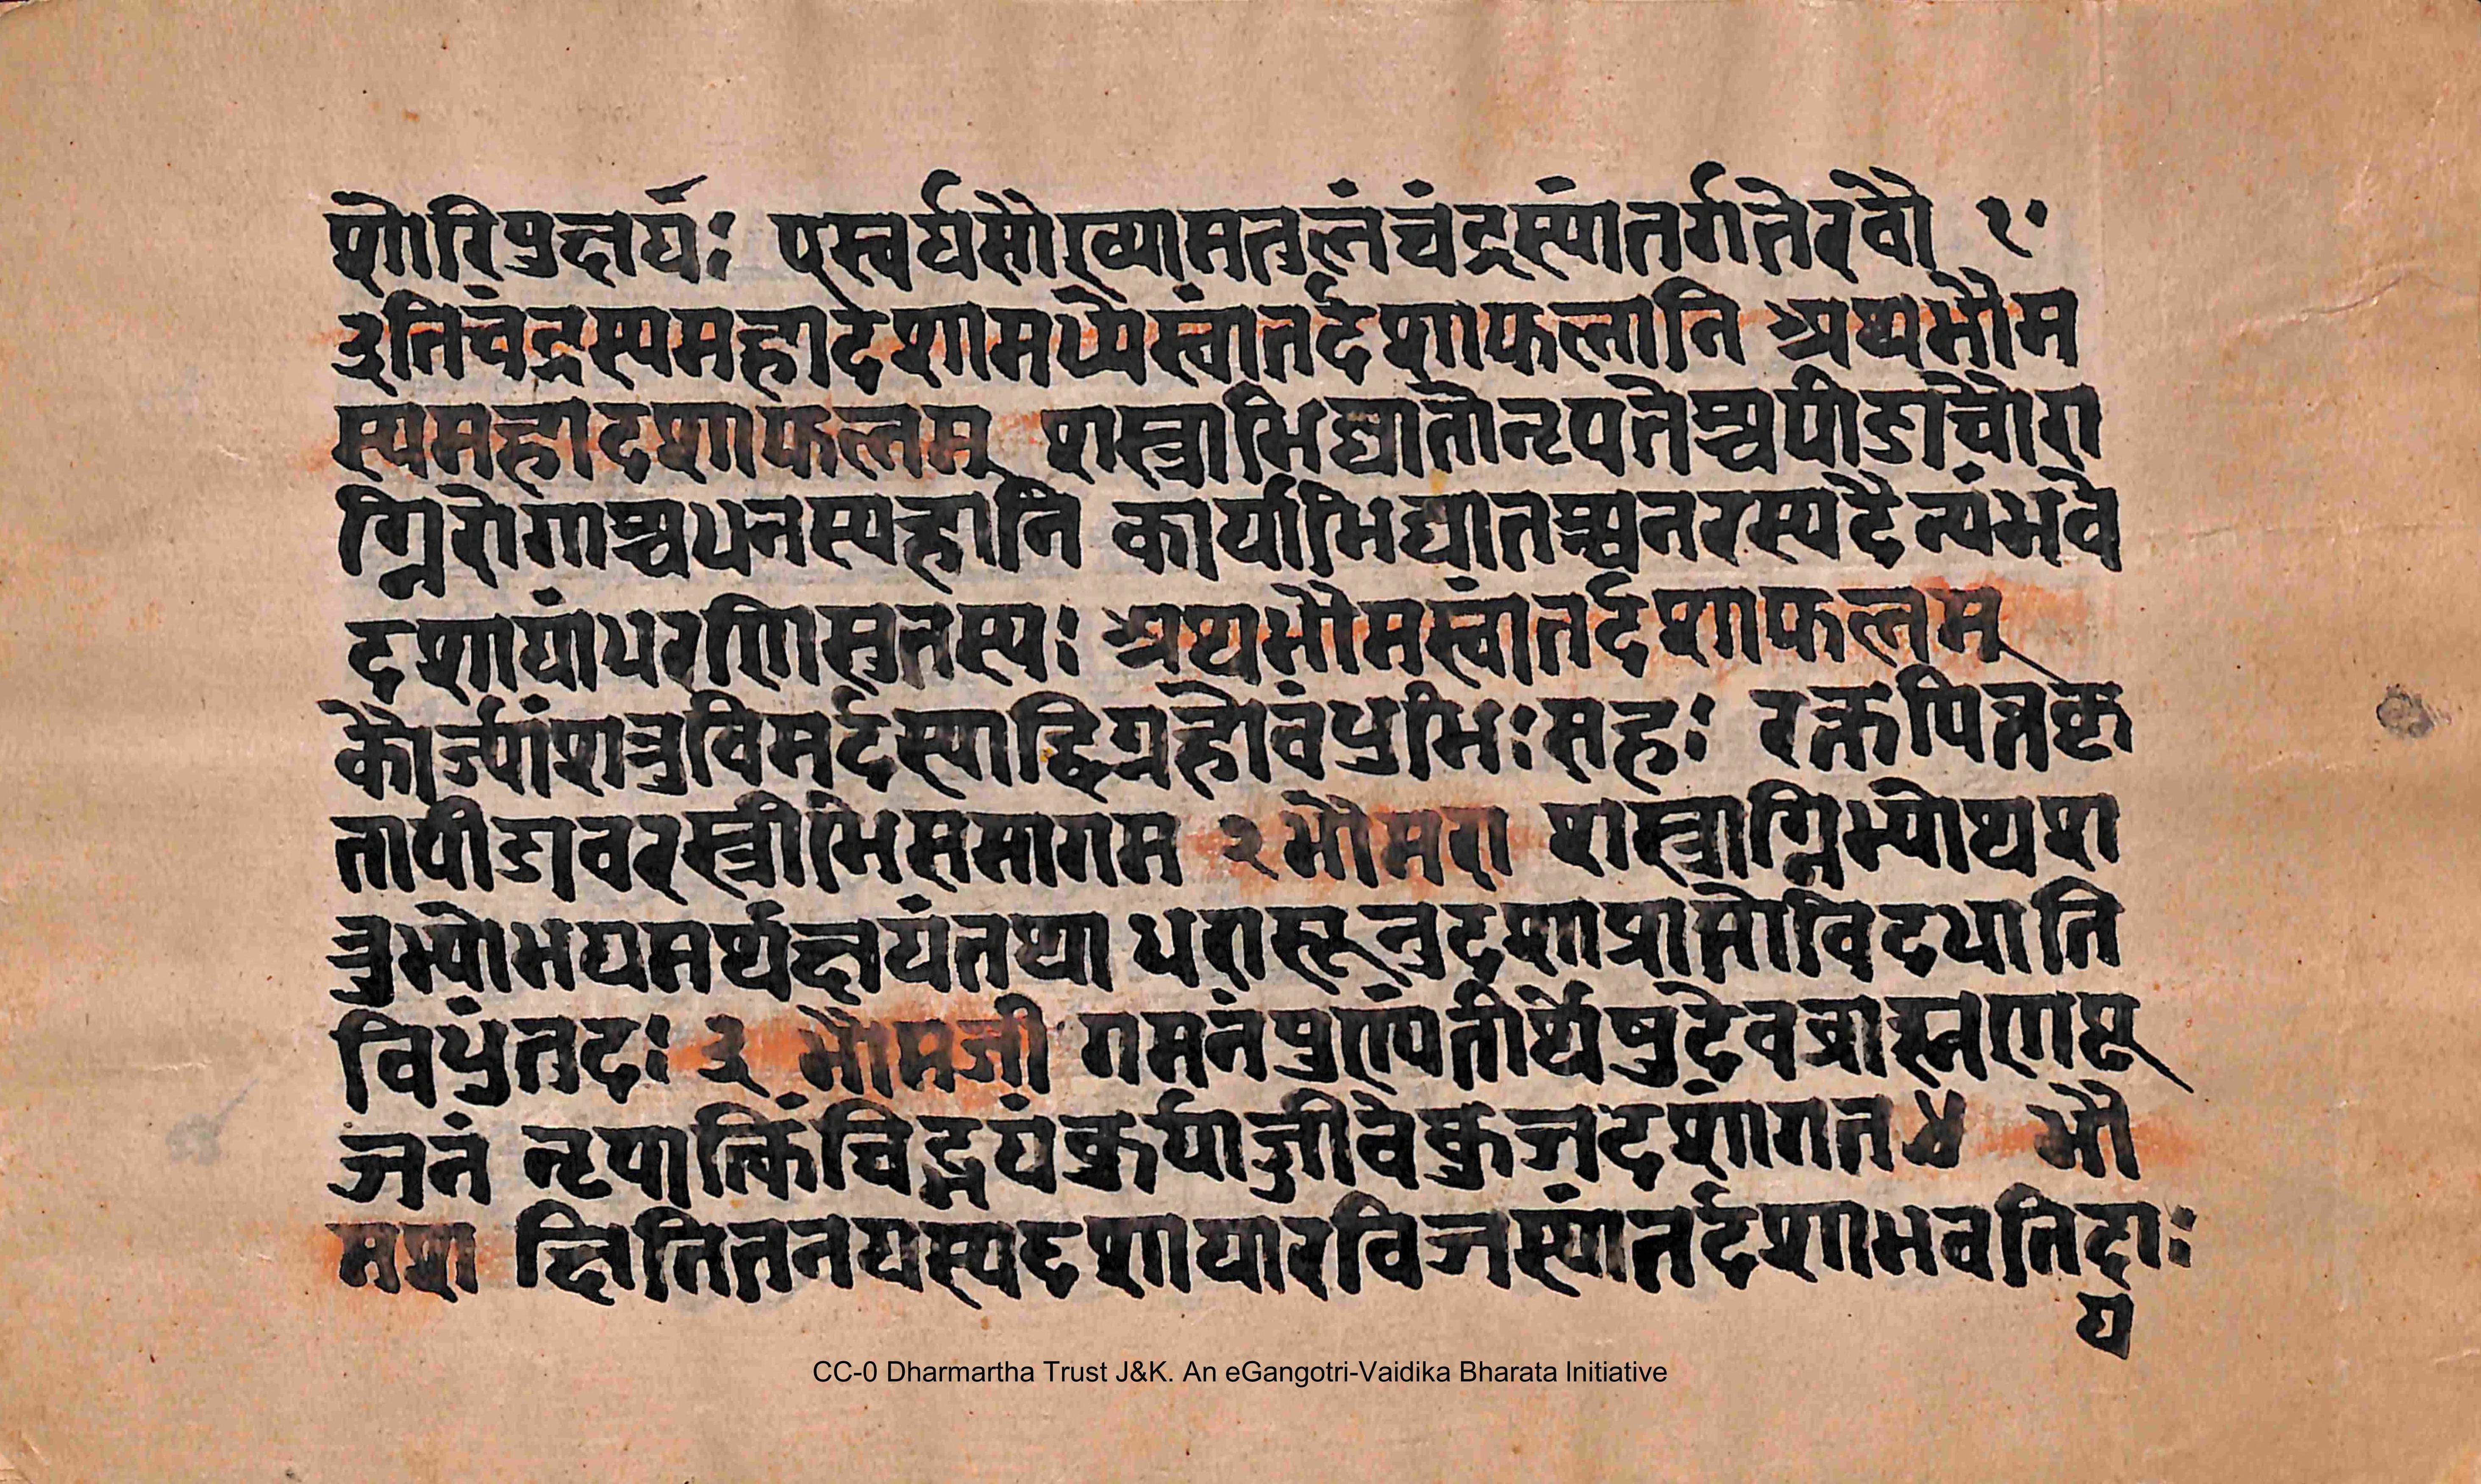 शोरिपुक्षर्यः एस्वर्यसौख्यामतुलंचंद्रस्यांतर्गतेरवौ १॰
इतिचंद्रस्यमहादशामध्येस्वांतर्दशाफलानि अथभौम
स्यमहादशाफलम् शस्त्राभिघातोनृपतेश्चपीडाचौरा
ग्निरोगाश्चधनस्यहानि कार्याभिघातश्चनरस्यदैन्यंभवे
दशायांधरणिसुतस्यः अथभौमस्वांतर्दशाफलम्
कौर्ज्यांशत्रुविमर्दस्याद्विग्रहोवंधुभिःसहः रक्तपित्तकृ
तापीडावरस्त्रीभिससागम २ भौमरा शस्त्राग्निभ्योथश
त्रुभ्योभयमर्थक्षयंतथा धरासूनुदशाप्राप्तोविदधाति
विधुंतदः ३ भौमजी गमनंपुण्यतीर्थेषुदेवब्राह्मणपू
जनं नृपात्किंचिद्भयंकुर्याज्जीवेकुजदशांगत ४ भौ
मश क्षितितनयस्यदशायारविजस्यांतर्दशाभवतिक्षाः
य
CC-0 Dharmartha Trust J&K. An eGangotri-Vaidika Bharata Initiative